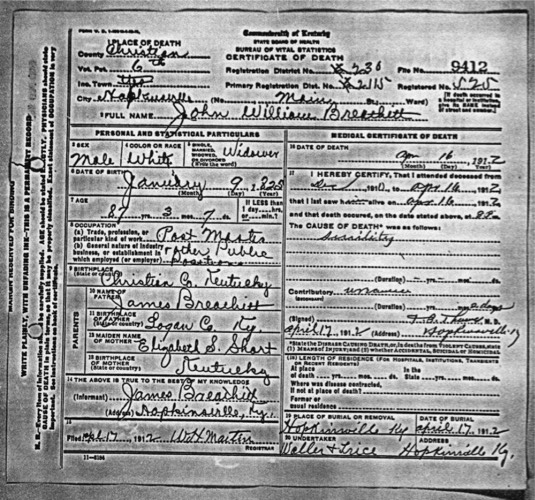 Commonwealth of Kentucky
STATE BOARD OF HEALTH
BUREAU OF VITAL STATISTICS
CERTIFICATE OF DEATH
1 PLACE OF DEATH
County Christian
Vot. Pct. 6th
Inc. Town
City Hopkinsville (No. Main St.; Ward)
Registration District No.
File No. 9412
Primary Registration Dist. No.
Registered No.
(If death occurred in a hospital or institution give its NAME instead of street and number.)
2 FULL NAME John William Breathitt
PERSONAL AND STATISTICAL PARTICULARS
3 SEX Male
4 COLOR OR RACE White
5 SINGLE, MARRIED, WIDOWED, OR DIVORCED (Write the word) Widower
6 DATE OF BIRTH
January 9, 1825
(Month) (Day) (Year)
7 AGE
87 yrs. 3 mos. 7 ds.
If LESS than 1 day, hrs. or min.?
8 OCCUPATION
(a) Trade, profession, or particular kind of work Post Master
(b) General nature of industry, business, or establishment in which employed (or employer) & other Public Positions
9 BIRTHPLACE (State or country) Christian Co. Kentucky
PARENTS
10 NAME OF FATHER James Breathitt
11 BIRTHPLACE OF FATHER (State or country) Logan Co. Ky.
12 MAIDEN NAME OF MOTHER Elizabeth S. Short
13 BIRTHPLACE OF MOTHER (State or country) Kentucky
14 THE ABOVE IS TRUE TO THE BEST OF MY KNOWLEDGE
(Informant) James Breathitt
(Address) Hopkinsville, Ky.
15
Filed 17, 1912 W H Martin
REGISTRAR
11-8184
MEDICAL CERTIFICATE OF DEATH
16 DATE OF DEATH
Apr 16, 1912
(Month) (Day) (Year)
17 I HEREBY CERTIFY, That I attended deceased from
1911, to Apr. 16, 1912
that I last saw him alive on Apr 16, 1912
and that death occurred, on the date stated above, at
The CAUSE OF DEATH* was as follows:
Senility
(Duration) yrs. mos. ds.
Contributory
(SECONDARY)
(Duration) yrs. mos. days
(Signed) M. D.
April 17, 1912 (Address) Hopkinsville Ky
*State the DISEASE CAUSING DEATH, or, in deaths from VIOLENT CAUSES, state (1) MEANS OF INJURY; and (2) whether ACCIDENTAL, SUICIDAL or HOMICIDAL
18 LENGTH OF RESIDENCE (FOR HOSPITALS, INSTITUTIONS, TRANSIENTS OR RECENT RESIDENTS)
At place of death yrs. mos. ds. In the State yrs. mos. ds.
Where was disease contracted, if not at place of death?
Former or usual residence
19 PLACE OF BURIAL OR REMOVAL
Hopkinsville Ky
DATE OF BURIAL
April 17, 1912
20 UNDERTAKER
Waller & Trice
ADDRESS
Hopkinsville Ky.
MARGIN RESERVED FOR BINDING
WRITE PLAINLY, WITH UNFADING INK—THIS IS A PERMANENT RECORD